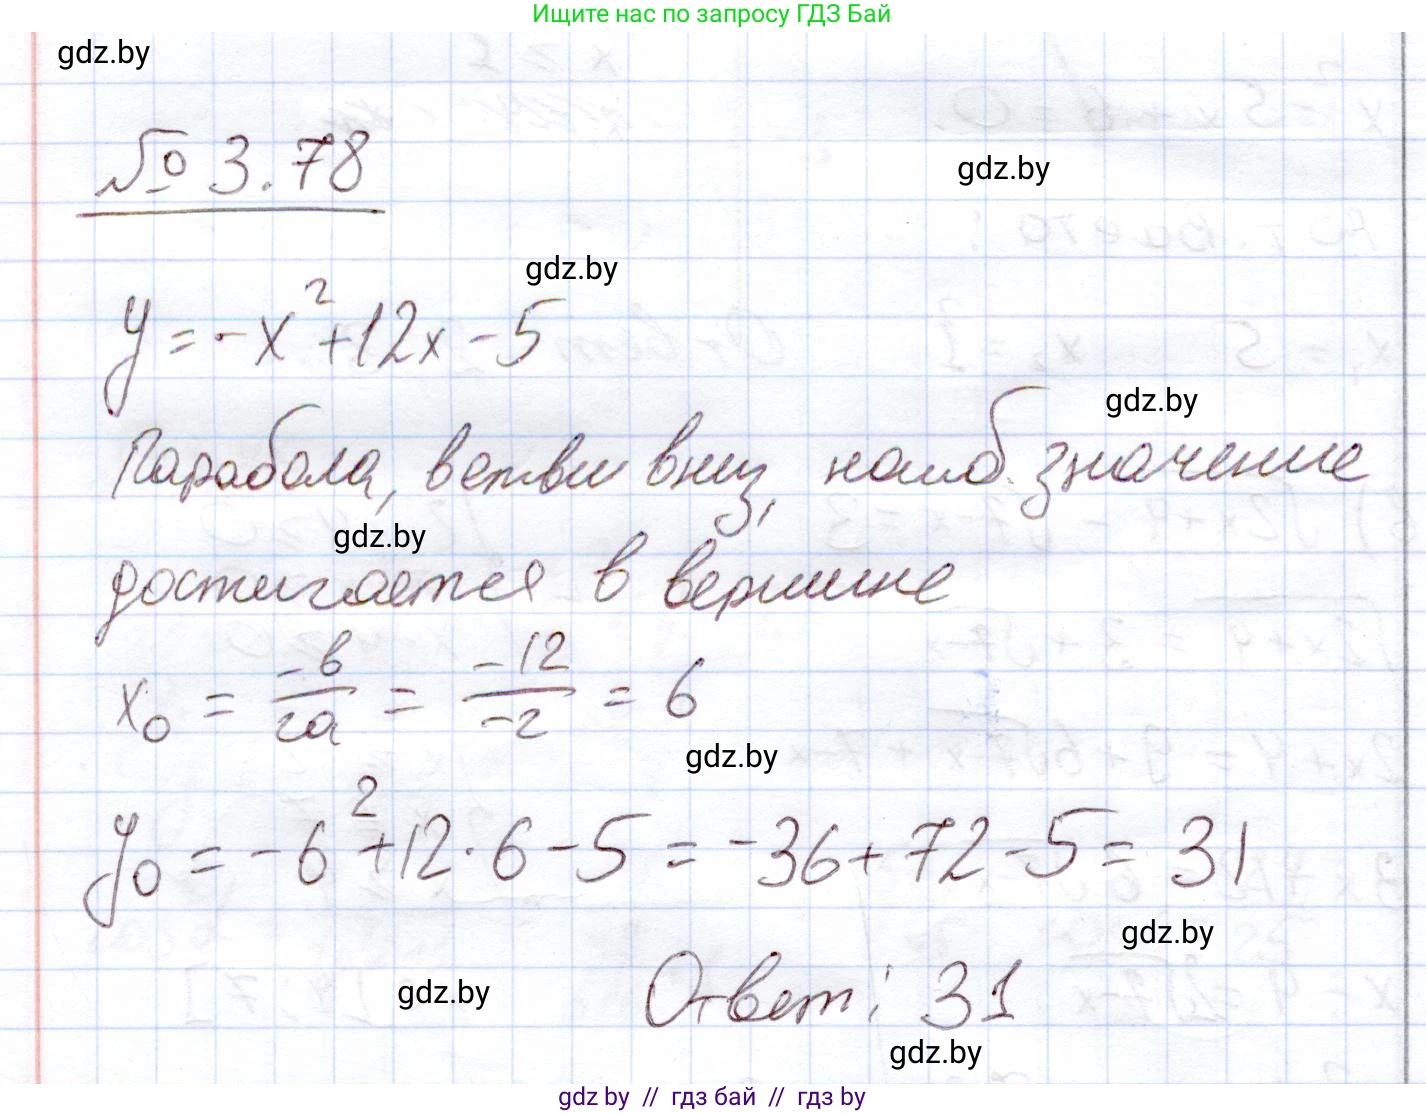 Ищите нас по запросу ГДЗ Бай
gdz.by
№ 3.78
gdz.by
gdz.by
y = -x² + 12x - 5
gdz.by
Парабола, ветви вниз, наиб. значение
gdz.by
достигается в вершине
x₀ = -в/2а = -12/-2 = 6
gdz.by
y₀ = -6² + 12 · 6 - 5 = -36 + 72 - 5 = 31
gdz.by
gdz.by
Ответ: 31
gdz.by
gdz by // гдз бай // гдз by